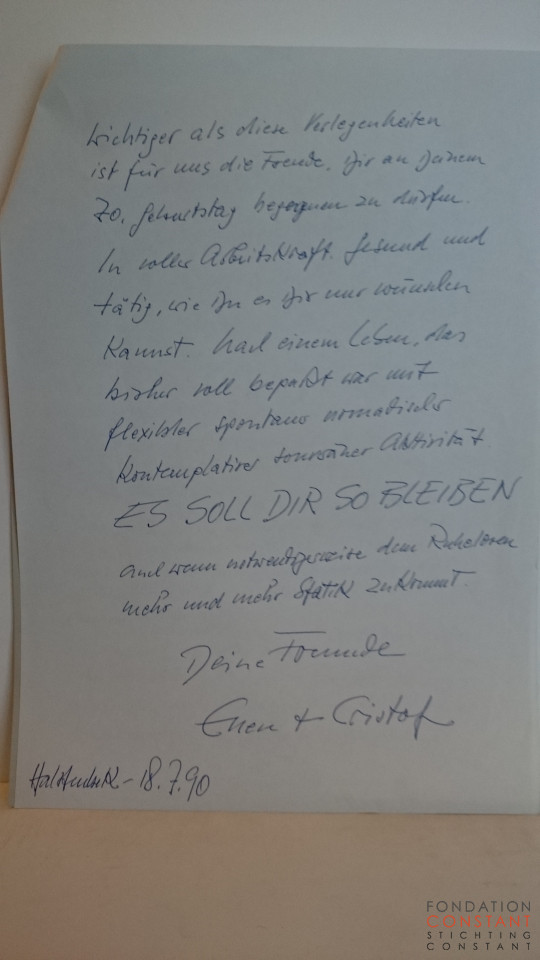 wichtiger als diese Verlegenheiten
ist für uns die Freude, Dir an Deinem
70. Geburtstag begegnen zu dürfen.
In voller Arbeitskraft. Gesund und
tätig, wie Du es Dir nur wünschen
kannst. Nach einem Leben, das
bisher voll bepackt war mit
flexibler spontaner nomadischer
kontemplativer Aktivität
ES SOLL DIR SO BLEIBEN
auch wenn notwendigerweise dem Ruhelosen
mehr und mehr Statik zukommt.
Deine Freunde
+ Cristof
18.7.90
FONDATION
CONSTANT
STICHTING
CONSTANT